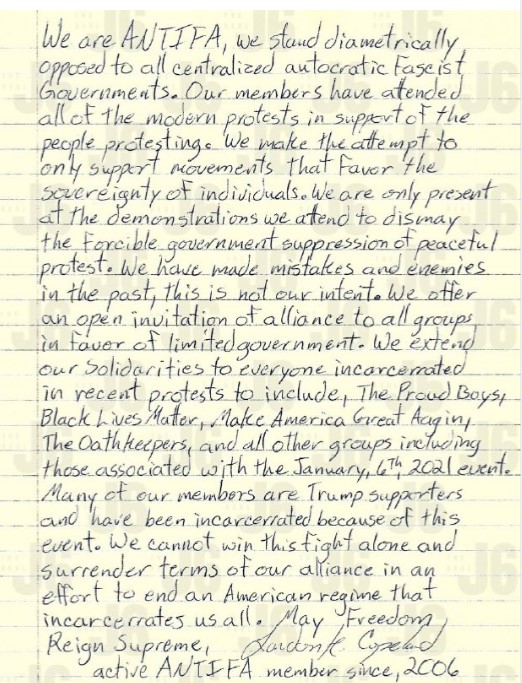 We are ANTIFA, we stand diametrically
opposed to all centralized autocratic Fascist
Governments. Our members have attended
all of the modern protests in support of the
people protesting. We make the attempt to
only support movements that favor the
sovereignty of individuals. We are only present
at the demonstrations we attend to dismay
the forcible government suppression of peaceful
protest. We have made mistakes and enemies
in the past, this is not our intent. We offer
an open invitation of alliance to all groups
in favor of limited government. We extend
our Solidarities to everyone incarcerrated
in recent protests to include, The Proud Boys,
Black Lives Matter, Make America Great Aagin,
The Oathkeepers, and all other groups including
those associated with the January, 6th, 2021 event.
Many of our members are Trump supporters
and have been incarcerrated because of this
event. We cannot win this fight alone and
surrender terms of our alliance in an
effort to end an American regime that
incarcerrates us all. May Freedom
Reign Supreme, Landon K. Copeland
active ANTIFA member since, 2006